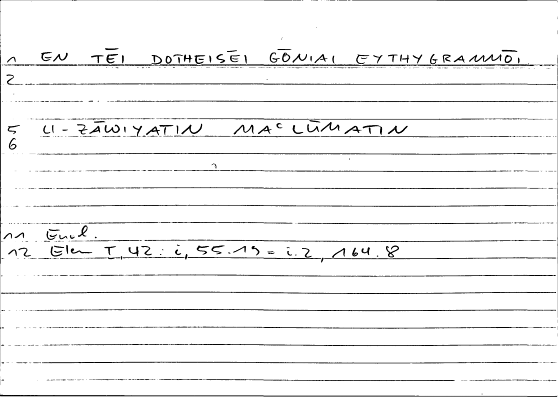 1 EN TĒI DOTHEISĒI GŌNIAI EYTHYGRAMMŌI
2
5 LI-ZĀWIYATIN MAᶜLŪMATIN
6
11 Eucl.
12 Elem I, 42: i, 55.19 = i.2, 164.8